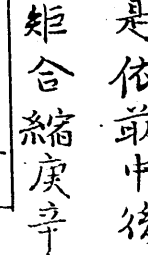 是依前中後
矩合縮庚辛